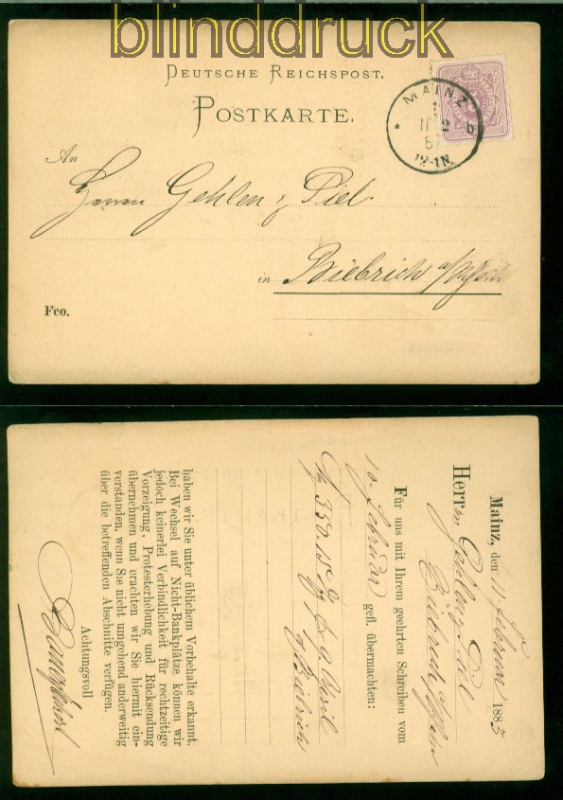 blinddruck
DEUTSCHE REICHSPOST.
POSTKARTE.
MAINZ
b
12-1N.
An
Herrn Gehlen & Piel.
in Biebrich a/Rhein
Fco.
Mainz, den 1883
Herrn
Biebrich
Für uns mit Ihrem geehrten Schreiben vom
10. Februar gefl. übermachten:
M 350.15
haben wir Sie unter üblichem Vorbehalte erkannt.
Bei Wechsel auf Nicht-Bankplätze können wir
jedoch keinerlei Verbindlichkeit für rechtzeitige
Vorzeigung, Protesterhebung und Rücksendung
übernehmen und erachten wir Sie hiermit ein-
verstanden, wenn Sie nicht umgehend anderweitig
über die betreffenden Abschnitte verfügen.
Achtungsvoll